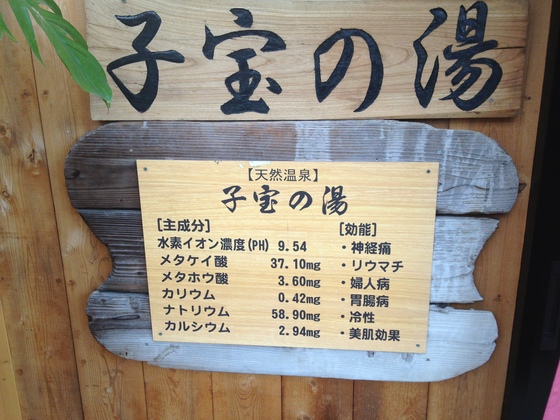 子宝の湯
【天然温泉】
子宝の湯
[主成分]
水素イオン濃度(PH) 9.54
メタケイ酸 37.10mg
メタホウ酸 3.60mg
カリウム 0.42mg
ナトリウム 58.90mg
カルシウム 2.94mg
[効能]
・神経痛
・リウマチ
・婦人病
・胃腸病
・冷性
・美肌効果